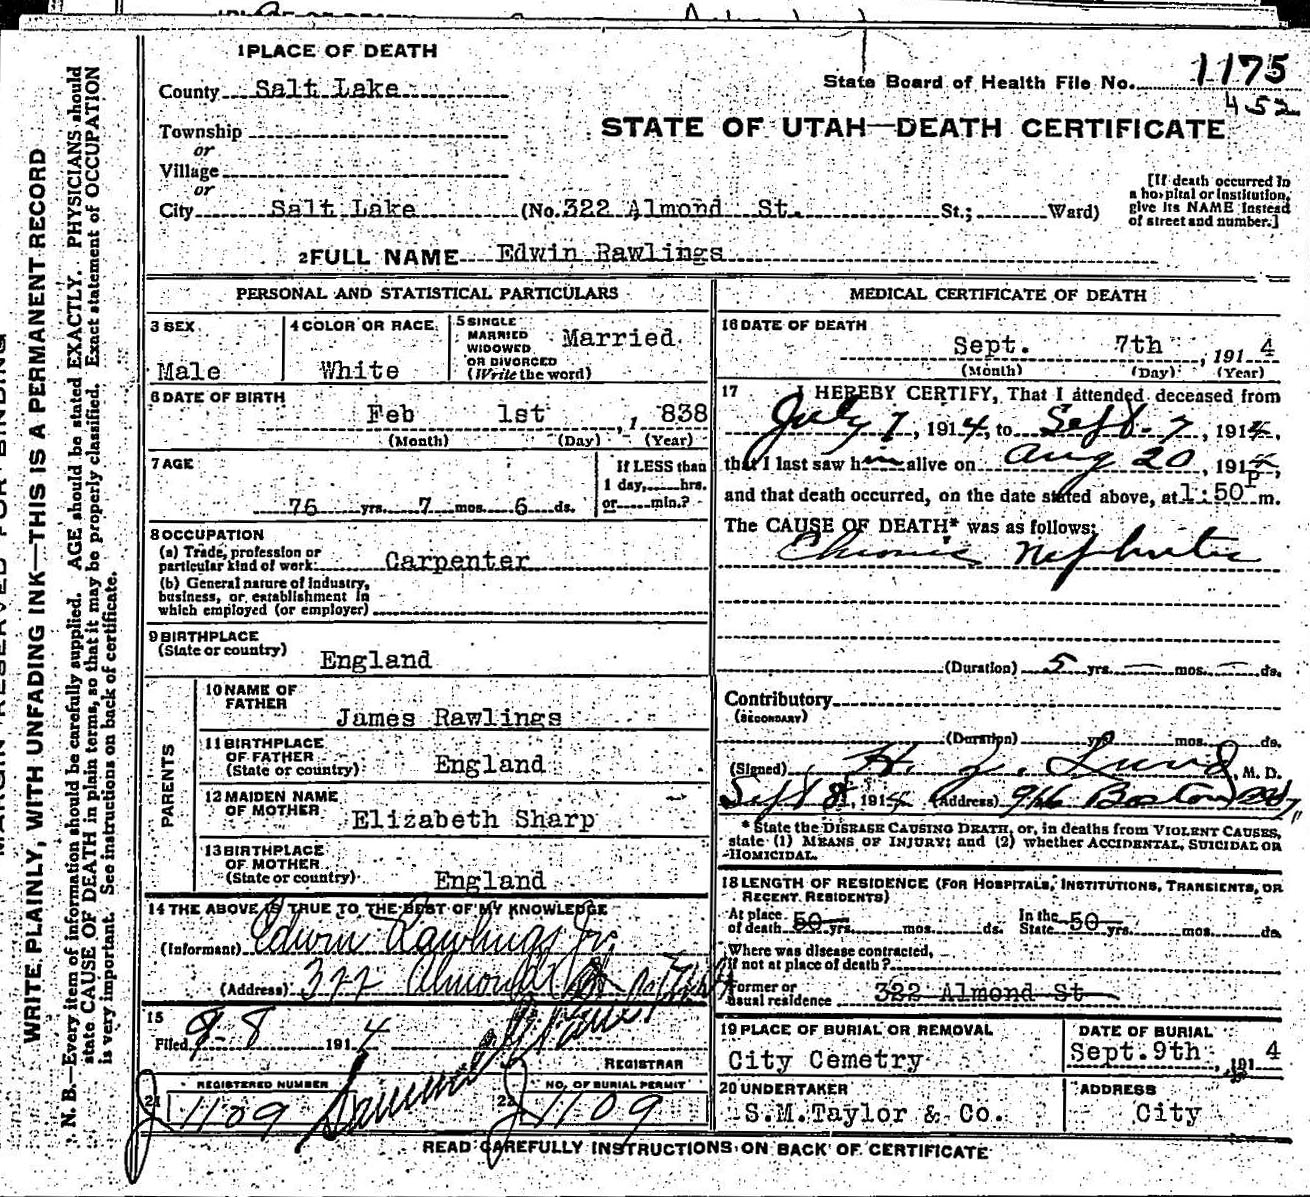 1 PLACE OF DEATH
County Salt Lake
Township
or
Village
or
City Salt Lake (No. 322 Almond St. St.; Ward)
State Board of Health File No. 1175
452
STATE OF UTAH—DEATH CERTIFICATE
[If death occurred in
a hospital or institution,
give its NAME instead
of street and number.]
2 FULL NAME Edwin Rawlings
PERSONAL AND STATISTICAL PARTICULARS
3 SEX
Male
4 COLOR OR RACE
White
5 SINGLE
MARRIED
WIDOWED
OR DIVORCED
(Write the word)
Married
6 DATE OF BIRTH
Feb 1st, 1838
(Month) (Day) (Year)
7 AGE
76 yrs. 7 mos. 6 ds.
If LESS than
1 day, hrs.
or min.?
8 OCCUPATION
(a) Trade, profession or
particular kind of work: Carpenter
(b) General nature of Industry,
business, or establishment in
which employed (or employer)
9 BIRTHPLACE
(State or country)
England
PARENTS
10 NAME OF
FATHER
James Rawlings
11 BIRTHPLACE
OF FATHER
(State or country)
England
12 MAIDEN NAME
OF MOTHER
Elizabeth Sharp
13 BIRTHPLACE
OF MOTHER
(State or country)
England
14 THE ABOVE IS TRUE TO THE BEST OF MY KNOWLEDGE
(Informant) Edwin Rawlings Jr.
(Address) 322 Almond
15
Filed 9-8 1914
REGISTRAR
21 REGISTERED NUMBER
1109
22 NO. OF BURIAL PERMIT
1109
MEDICAL CERTIFICATE OF DEATH
16 DATE OF DEATH
Sept. 7th, 1914
(Month) (Day) (Year)
17 I HEREBY CERTIFY, That I attended deceased from
July 7, 1914, to Sept. 7, 1914,
that I last saw him alive on Aug 20, 1914,
and that death occurred, on the date stated above, at 1:50 P m.
The CAUSE OF DEATH* was as follows:
Chronic Nephritis
(Duration) 5 yrs. — mos. — ds.
Contributory
(SECONDARY)
(Duration) yrs. mos. ds.
(Signed) H. J. Lund, M. D.
Sept 8, 1914 (Address) 916 Boston
* State the DISEASE CAUSING DEATH, or, in deaths from VIOLENT CAUSES,
state (1) MEANS OF INJURY; and (2) whether ACCIDENTAL, SUICIDAL OR
HOMICIDAL.
18 LENGTH OF RESIDENCE (FOR HOSPITALS, INSTITUTIONS, TRANSIENTS, OR
RECENT RESIDENTS)
At place
of death 50 yrs. mos. ds.
In the
State 50 yrs. mos. ds.
Where was disease contracted,
if not at place of death?
Former or
usual residence 322 Almond St
19 PLACE OF BURIAL OR REMOVAL
City Cemetry
DATE OF BURIAL
Sept. 9th, 1914
20 UNDERTAKER
S.M.Taylor & Co.
ADDRESS
City
READ CAREFULLY INSTRUCTIONS ON BACK OF CERTIFICATE
WRITE PLAINLY, WITH UNFADING INK—THIS IS A PERMANENT RECORD
N. B.—Every item of information should be carefully supplied. AGE should be stated EXACTLY. PHYSICIANS should
state CAUSE OF DEATH in plain terms, so that it may be properly classified. Exact statement of OCCUPATION
is very important. See instructions on back of certificate.